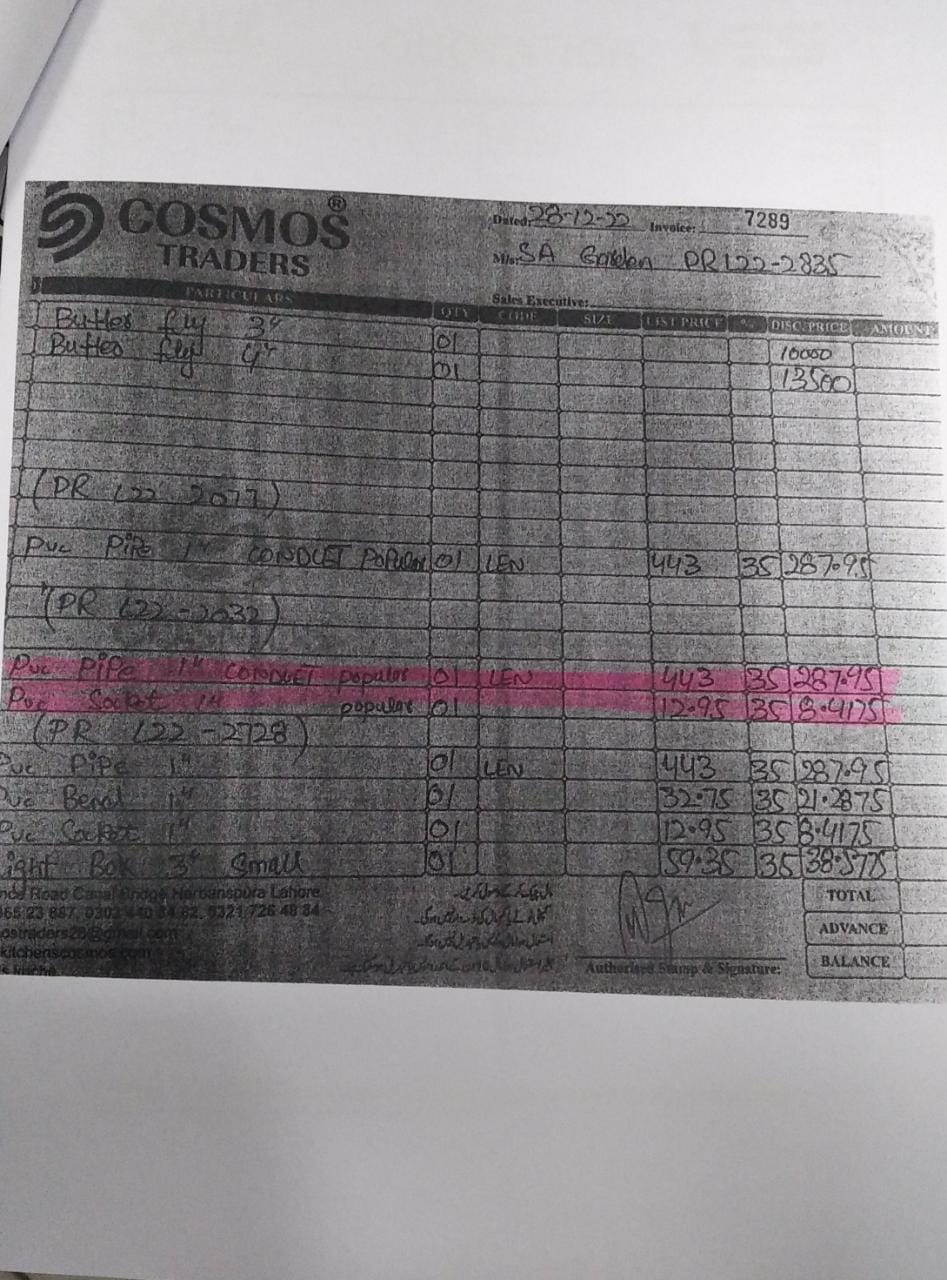 COSMOS ®
TRADERS
Dated: 28-12-22 Invoice: 7289
M/s: SA Garden PR 122-2835
Sales Executive:
PARTICULARS QTY CODE SIZE LIST PRICE % DISC. PRICE AMOUNT
Butter fly 3" 01 10000
Butter fly 4" 01 13500
(PR 122 2077)
Pvc Pipe 1" CONDUET Popular 01 LEN 443 35 287.95
(PR 122-2032)
Pvc Pipe 1" CONDUET popular 01 LEN 443 35 287.95
Pvc Socket 1" popular 01 12.95 35 8.4175
(PR 122-2728)
Pvc Pipe 1" 01 LEN 443 35 287.95
Pvc Bend 1" 01 32.75 35 21.2875
Pvc Socket 1" 01 12.95 35 8.4175
ight Box 3" Small 01 59.35 35 38.5775
Road Canal Bridge Harbanspura Lahore
TOTAL
ADVANCE
BALANCE
Authorised Stamp & Signature: